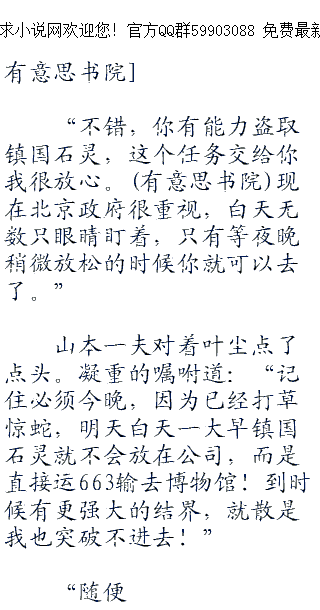 求小说网欢迎您！官方QQ群59903088 免费最新
有意思书院]
“不错，你有能力盗取
镇国石灵，这个任务交给你
我很放心。(有意思书院)现
在北京政府很重视，白天无
数只眼睛盯着，只有等夜晚
稍微放松的时候你就可以去
了。”
山本一夫对着叶尘点了
点头。凝重的嘱咐道：“记
住必须今晚，因为已经打草
惊蛇，明天白天一大早镇国
石灵就不会放在公司，而是
直接运663输去博物馆！到时
候有更强大的结界，就散是
我也突破不进去！”
“随便